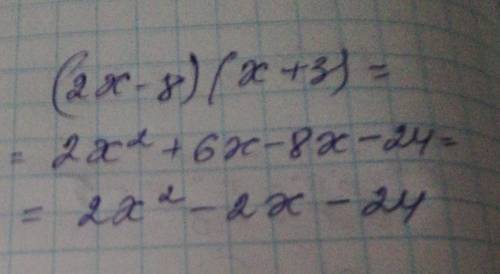 (2x-8)(x+3)=
= 2x²+6x-8x-24=
= 2x²-2x-24